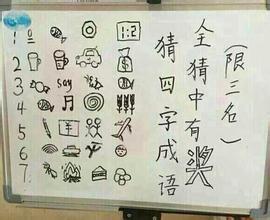 (限三名)
全猜中有奖
猜四字成语
1 1:2
2
3 say
4
5
6
7